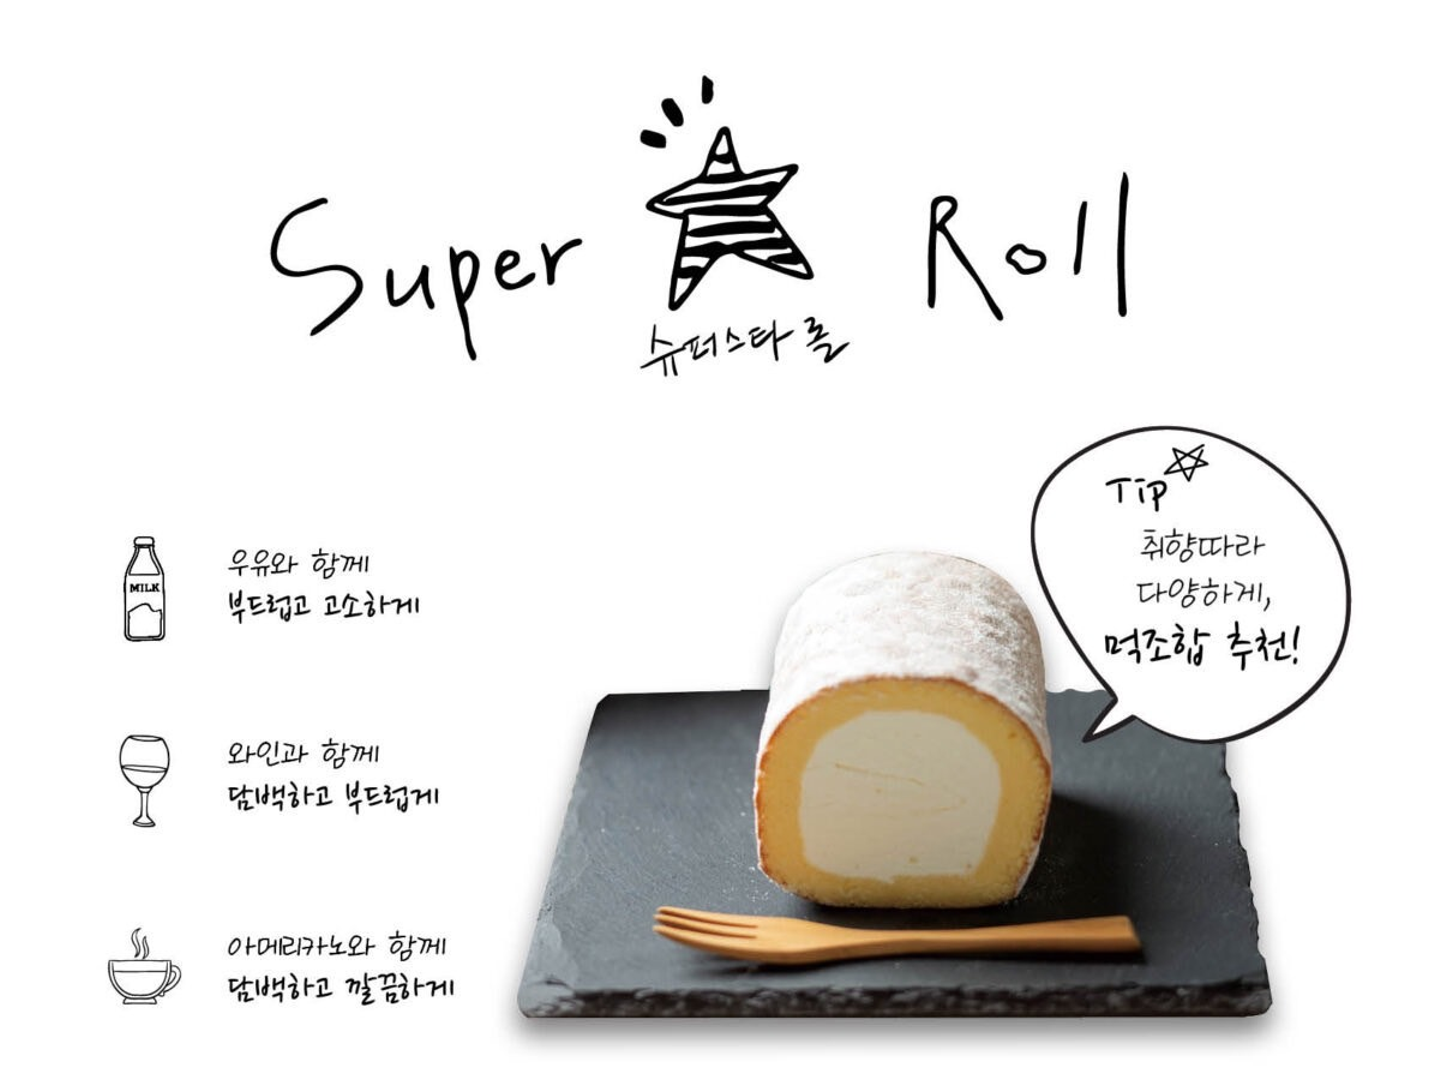 Super Roll
슈퍼스타 롤
Tip
취향따라
다양하게,
먹조합 추천!
MILK
우유와 함께
부드럽고 고소하게
와인과 함께
담백하고 부드럽게
아메리카노와 함께
담백하고 깔끔하게